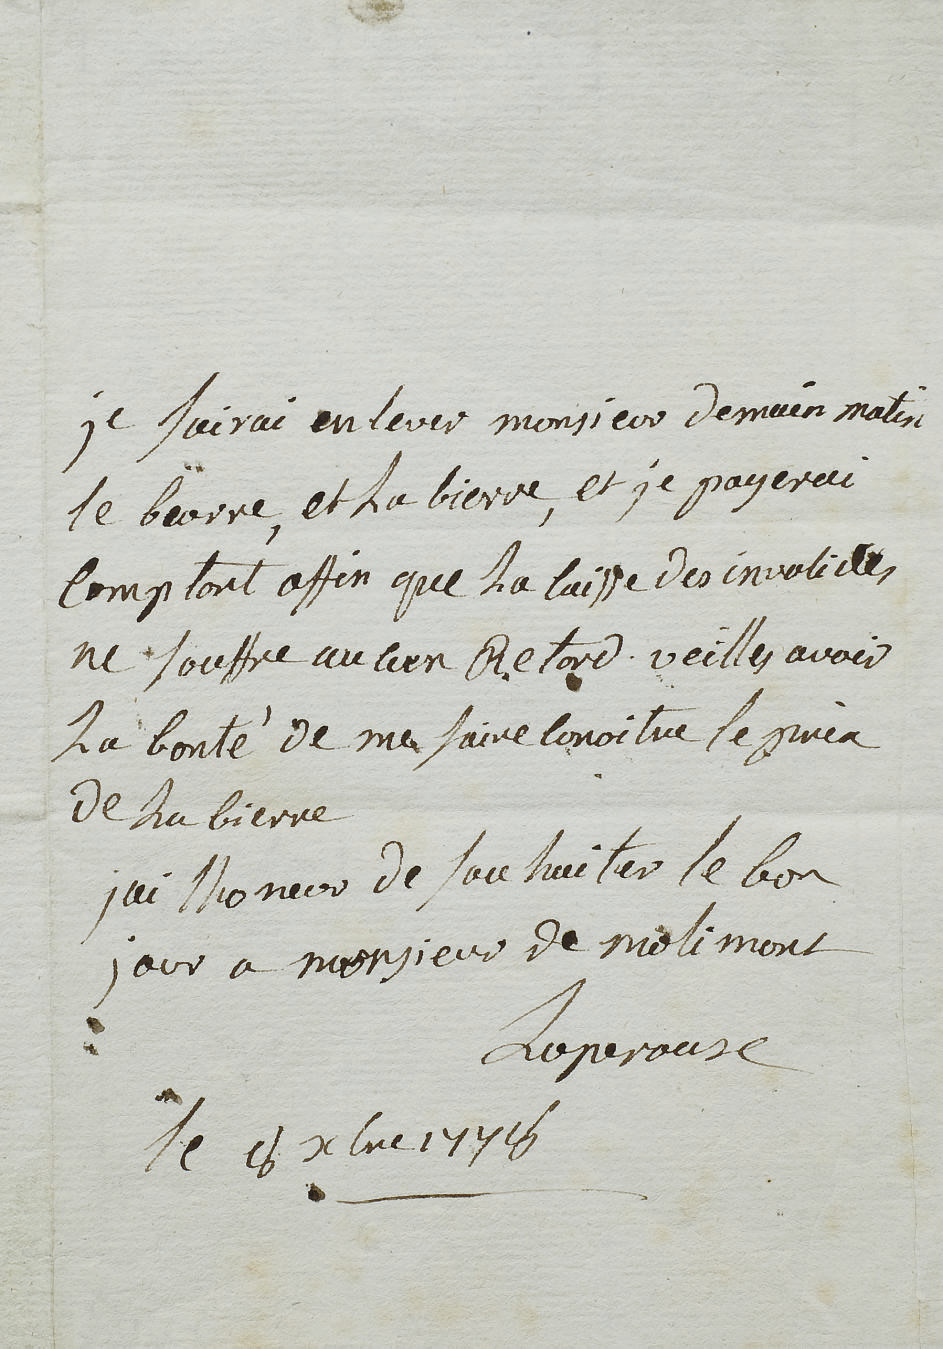 je fairai enlever monsieur demain matin
le beurre, et La bierre, et je payerai
comptant affin que La caisse des invalides
ne souffre aucun Retard. veilles avoir
La bonté de me faire conoitre le prix
de La bierre
jai lhoneur de souhaiter le bon
jour a monsieur de molimont
Laperouse
le 8 xbre 1778